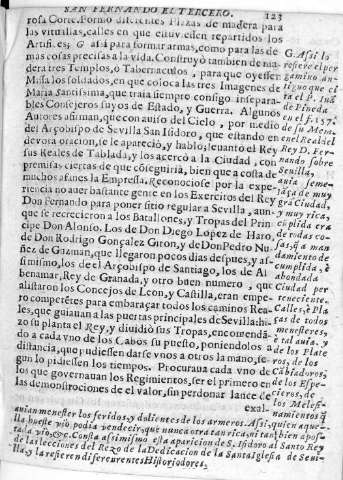 SAN FERNANDO EL TERCERO. 123
rosa Corte. Formò diferentes Plazas de madera para
las vituallas, calles en que estuviesen repartidos los
Artifices; G assi para formar armas, como para las de
mas cosas precisas a la vida. Construyò tambien de ma
dera tres Templos, ò Tabernaculos, para que oyessen
Missa los soldados, en que coloca las tres Imagenes de
Maria Santissima, que traia siempre consigo insepara-
bles Consejeros suyos de Estado, y Guerra. Algunos
Autores afirman, que con auiso del Cielo, por medio
del Arçobispo de Sevilla San Isidoro, que estando en
devota oracion, se le apareciò, y hablo; leuantò el Rey
sus Reales de Tablada, y los acercò a la Ciudad, con
premisas ciertas de que cõseguiria, bien que a costa de
muchos afanes la Empressa. Reconociose por la expe-
riencia no auer bastante gente en los Exercitos del Rey
Don Fernando para poner sitio regular a Sevilla, aun-
que se recrecieron a los Batallones, y Tropas del Prin
cipe Don Alonso. Los de Don Diego Lopez de Haro,
de Don Rodrigo Gonçalez Giron, y de Don Pedro Nu-
ñez de Guzman, que llegaron pocos dias despues, y as-
simismo, los de el Arçobispo de Santiago, los de Al
benamar, Rey de Granada, y otro buen numero, que
alistaron los Concejos de Leon, y Castilla, eran empe-
ro competẽtes para embaraçar todos los caminos Rea-
les, que guiauan a las puertas principales de Sevilla: hi-
zo su planta el Rey, y dividiò sus Tropas, encomendã-
do a cada vno de los Cabos su puesto, poniendolos a
distancia, que pudiessen darse vnos a otros la mano, se-
gun lo pidiessen los tiempos. Procuraua cada vno de
los que governauan los Regimientos, ser el primero en
las demonstraciones de el valor, sin perdonar lance de
exal-
G. Assi lo
refiere el per
gamino an-
tiguo que ci
ta el P. Iuã
de Pineda
en el f. 157.
de su Mem.
en el Real del
Rey D. Fer-
nando sobre
Sevilla,
auia seme-
jãça de muy
grã Ciudad,
y muy rica,
cũplida era
de todas co-
sas; q̃ a man
damiento de
cumplida, è
abondada
Ciudad per
tenecientes.
Calles, è Pla
ças de todos
menesteres, y
è tal auia.
de los Plate
ros, de los
Cãbiadores,
de los Espe-
cieros, de
los Melesi-
namientos q̃
auian menester los feridos, y dolientes de los armeros. Assi, quien aque-
lla hueste viò, podia bendecir, que nunca otra tan rica, ni tan bien apos-
tada viò, &c. Consta assimismo esta aparicion de S. Isidoro al Santo Rey
de las lecciones del Rezo de la Dedicacion de la Santa Iglesia de Sevi-
lla, y la refieren diferentes Historiadores.